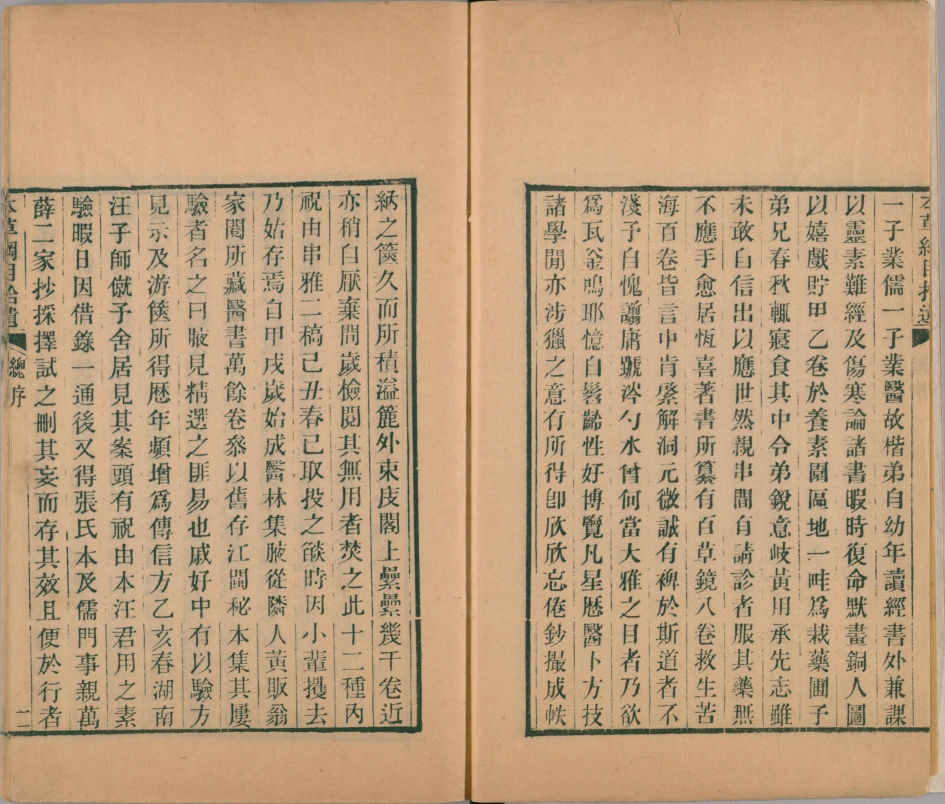 本草綱目拾遺
一子業儒一子業醫故楷弟自幼年讀經書外兼課
以靈素難經及傷寒論諸書暇時復命默畫銅人圖
以嬉戲貯甲乙卷於養素園區地一畦爲栽藥圃予
弟兄春秋輒寢食其中令弟銳意岐黃用承先志雖
未敢自信出以應世然親串間有請診者服其藥無
不應手愈居恆喜著書所纂有百草鏡八卷救生苦
海百卷皆言中肯綮解洞元微誠有裨於斯道者不
淺予自愧譾庸蹏涔勺水曾何當大雅之目者乃欲
爲瓦釜鳴耶憶自髫齡性好博覽凡星曆醫卜方技
諸學間亦涉獵之意有所得卽欣欣忘倦鈔撮成帙
納之篋久而所積溢簏外束庋閣上纍纍幾千卷近
亦稍自厭棄間歲檢閱其無用者焚之此十二種內
祝由串雅二稿己丑春已取投之燄時因小輩攫去
乃始存焉自甲戌歲始成醫林集腋從隣人黃販翁
家閱所藏醫書萬餘卷叅以舊存江閩秘本集其屢
驗者名之曰腋見精選之匪易也戚好中有以驗方
見示及游篋所得歷年頻增爲傳信方乙亥春湖南
汪子師僦予舍居見其案頭有祝由本汪君用之素
驗暇日因借錄一通後又得張氏本及儒門事親萬
薛二家抄採擇試之刪其妄而存其效且便於行者
本草綱目拾遺
總序
二